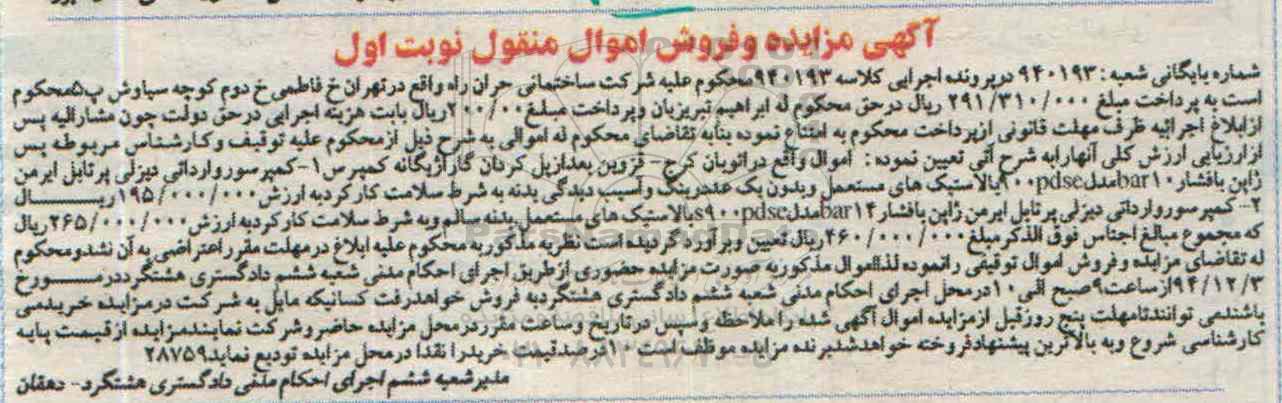 آگهی مزایده وفروش اموال منقول نوبت اول
شماره بایگانی شعبه: ۹۴۰۱۹۳ درپرونده اجرایی کلاسه ۹۴۰۱۹۳محکوم علیه شرکت ساختمانی حران راه واقع درتهران خ فاطمی خ دوم کوچه سیاوش پ۵محکوم
است به پرداخت مبلغ ۲۹۱/۳۱۰/۰۰۰ ریال درحق محکوم له ابراهیم تبریزیان وپرداخت مبلغ ریال بابت هزینه اجرایی درحق دولت چون مشارالیه پس
ازابلاغ اجرائیه ظرف مهلت قانونی ازپرداخت محکوم به امتناع نموده بنابه تقاضای محکوم له اموالی به شرح ذیل ازمحکوم علیه توقیف وکارشناس مربوطه پس
ازارزیابی ارزش کلی آنهارابه شرح آتی تعیین نموده: اموال واقع دراتوبان کرج- قزوین بعدازپل کردان گاراژیگانه کمپرس۱-کمپرسوروارداتی دیزلی پرتابل ایرمن
ژاپن بافشار۱۰barمدلpdse۹۰۰بالاستیک های مستعمل وبدون یک عددرینگ وآسیب دیدگی بدنه به شرط سلامت کارکردبه ارزش۱۹۵/۰۰۰/۰۰۰ریـــــال
۲-کمپرسوروارداتی دیزلی پرتابل ایرمن ژاپن بافشار۱۴barمدلpdse۹۰۰sبالاستیک های مستعمل بدنه سالم وبه شرط سلامت کارکردبه ارزش۲۶۵/۰۰۰/۰۰۰ریال
که مجموع مبالغ اجناس فوق الذکرمبلغ۴۶۰/۰۰۰/۰۰۰ریال تعیین وبرآوردگردیده است نظریه مذکوربه محکوم علیه ابلاغ درمهلت مقرراعتراضی به آن نشدومحکوم
له تقاضای مزایده وفروش اموال توقیفی رانموده لذااموال مذکوربه صورت مزایده حضوری ازطریق اجرای احکام مدنی شعبه ششم دادگستری هشتگرددرمـــورخ
۹۴/۱۲/۳ازساعت۹صبح الی۱۰درمحل اجرای احکام مدنی شعبه ششم دادگستری هشتگردبه فروش خواهدرفت کسانیکه مایل به شرکت درمزایده خریدمی
باشندمی توانندتامهلت پنج روزقبل ازمزایده اموال آگهی شده راملاحظه وسپس درتاریخ وساعت مقرردرمحل مزایده حاضروشرکت نمایندمزایده ازقیمت پایه
کارشناسی شروع وبه بالاترین پیشنهادفروخته خواهدشدبرنده مزایده موظف است ۱۰درصدقیمت خریدرا نقدا درمحل مزایده تودیع نماید۲۸۷۵۹
مدیرشعبه ششم اجرای احکام مدنی دادگستری هشتگرد- دهقان
ParsNamadData